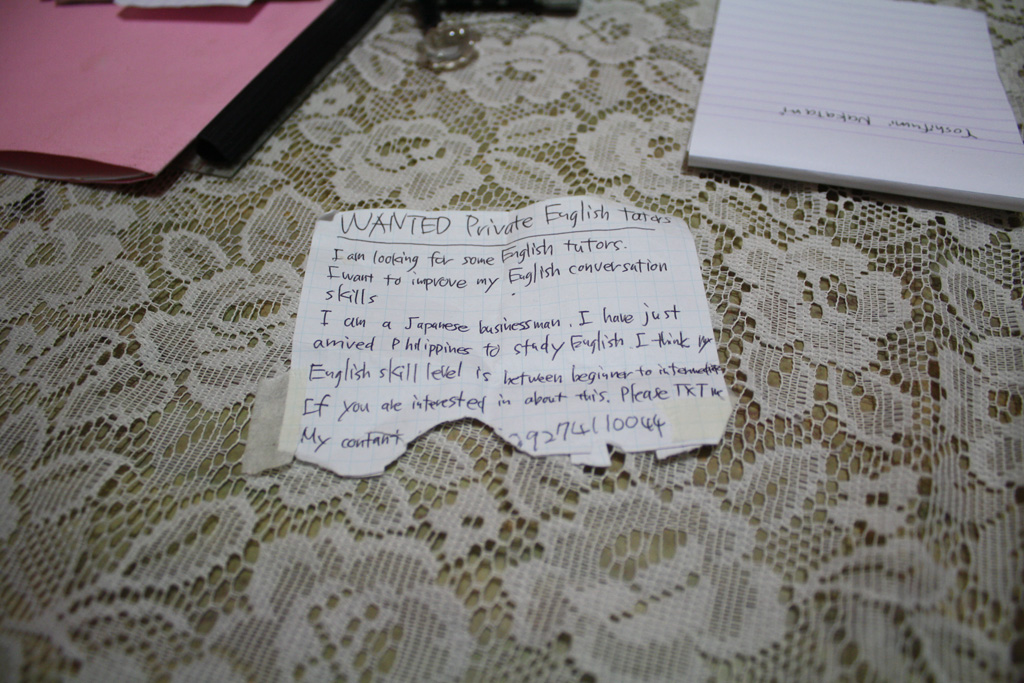 WANTED Private English tutors
I am looking for some English tutors.
I want to improve my English conversation
skills
I am a Japanese businessman. I have just
arrived Philippines to study English. I think my
English skill level is between beginner to intermediate
If you are interested in about this. Please TXT me
My contant 09274110044
Yoshifumi Nakatani